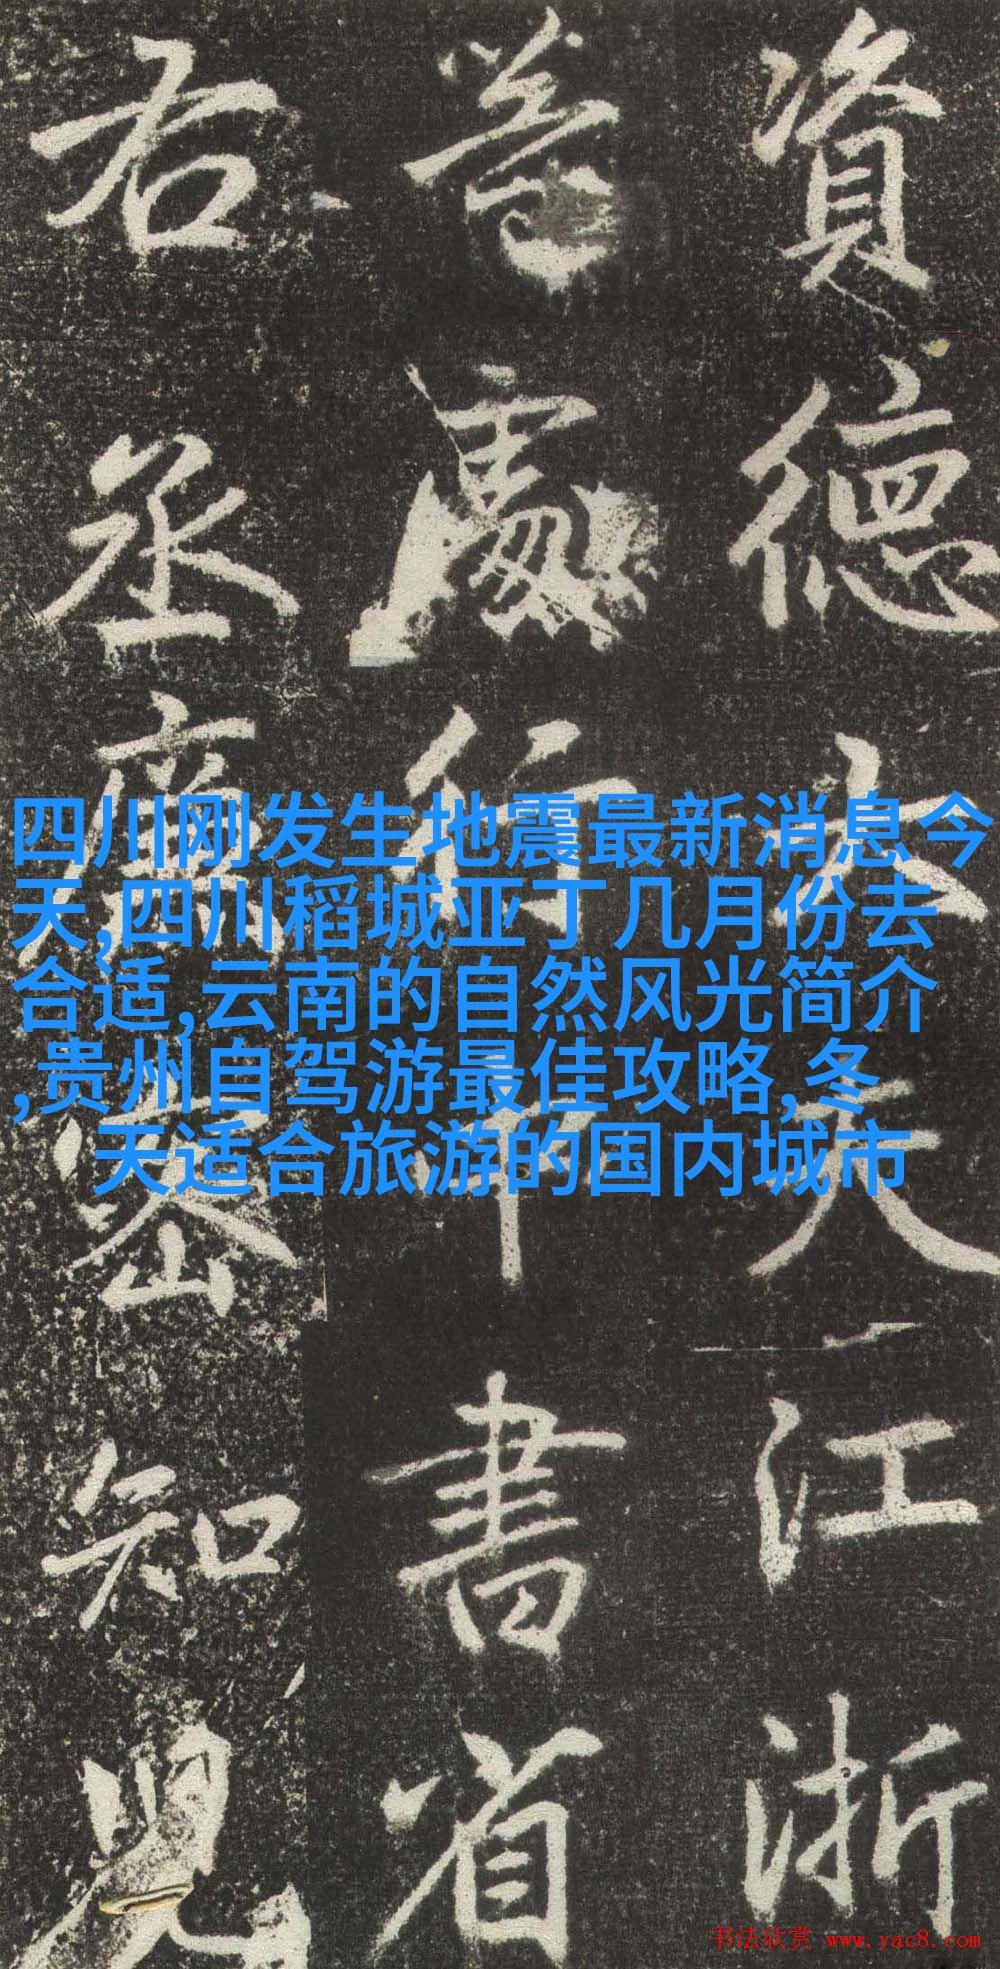 資德大夫江浙
等處行中書省
右丞廉密知兒
四川刚发生地震最新消息今
天,四川稻城亚丁几月份去
合适,云南的自然风光简介
,贵州自驾游最佳攻略,冬
天适合旅游的国内城市
书法欣赏 www.yac8.com